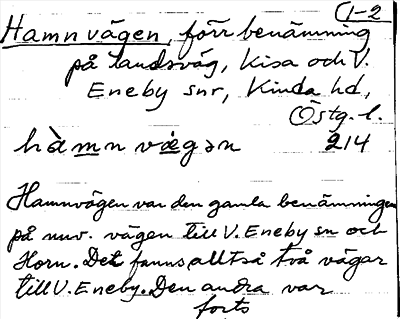 (1-2
Hamnvägen, förr benämning
på landsväg, Kisa och V.
Eneby snr, Kinda hd,
Östg. l.
hàmn vægən 214
Hamnvägen var den gamla benämningen
på nuv. vägen till V. Eneby sn och
Horn. Det fanns alltså två vägar
till V. Eneby. Den andra var
forts